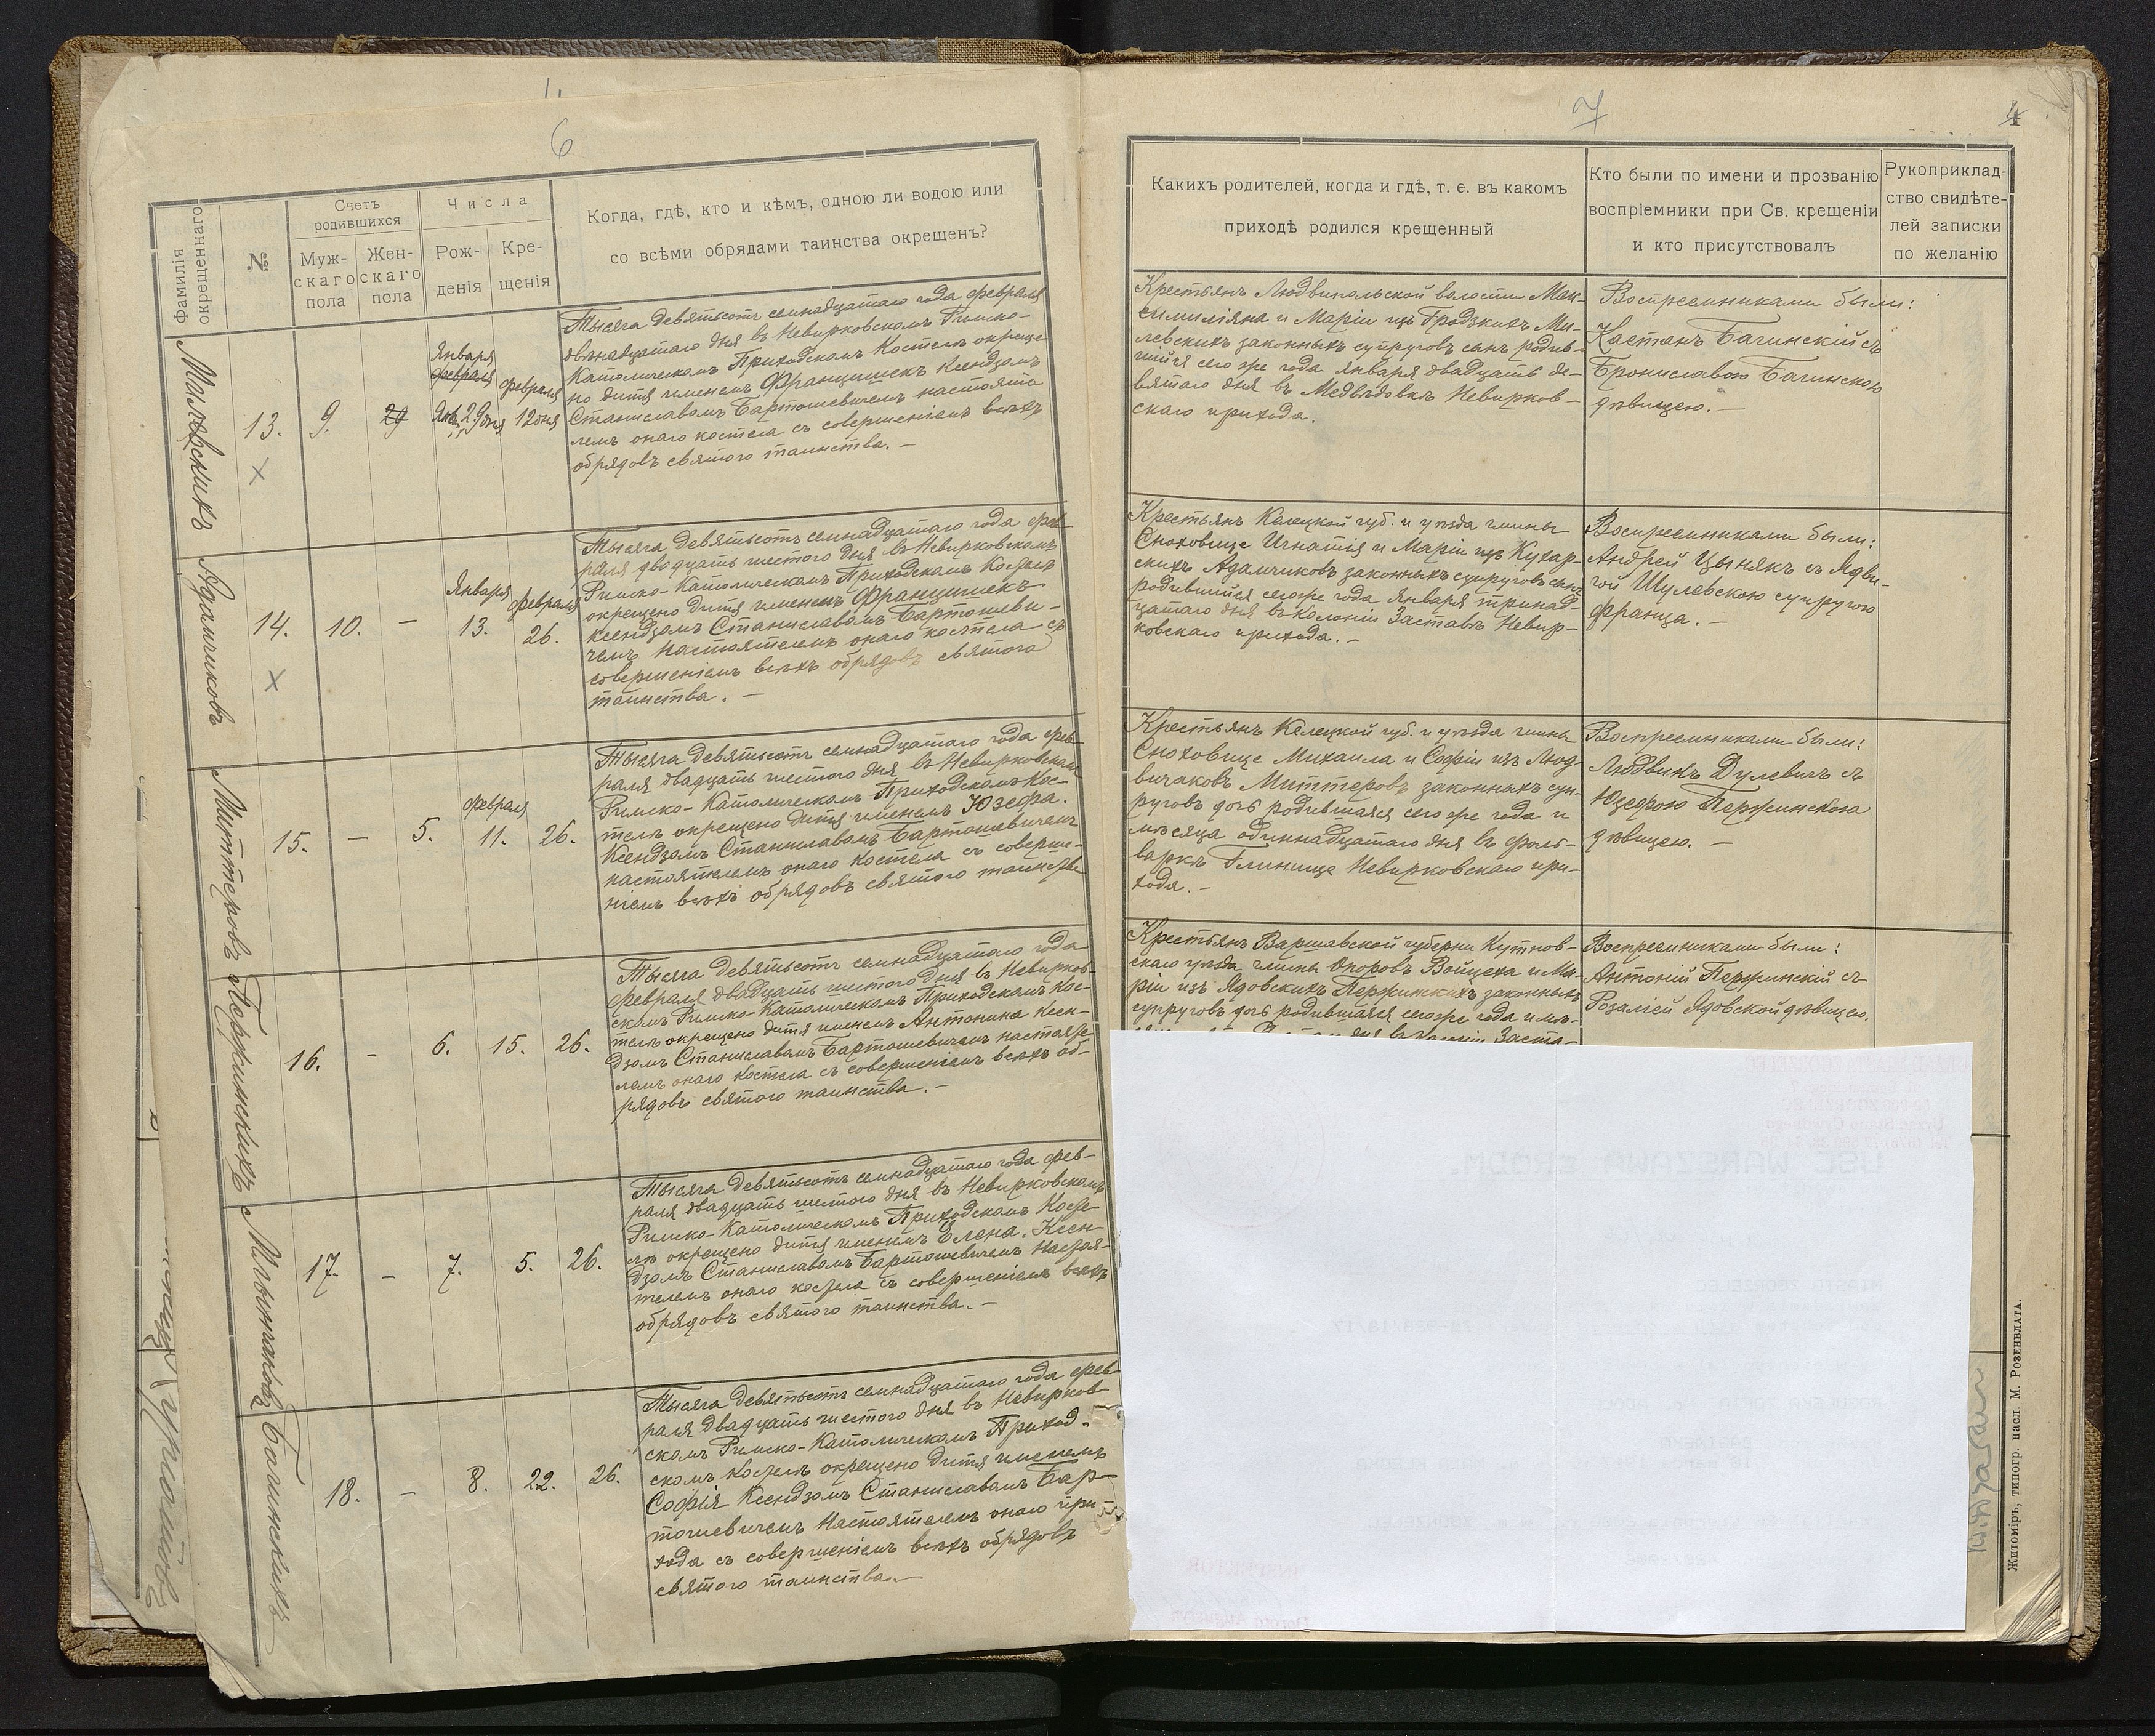 6
Фамилія окрещеннаго
№№
Счетъ родившихся
Мужскаго пола
Женскаго пола
Числа
Рожденія
Крещенія
Когда, гдѣ, кто и кѣмъ, одною ли водою или
со всѣми обрядами таинства окрещенъ?
13.
9.
29
Января
февраля
29 дня
февраля
12 дня
Тысяча девятьсотъ семнадцатаго года февраля
двѣнадцатаго дня въ Невирковскомъ Римско-
Католическомъ Приходскомъ Костелѣ окреще
но дитя именемъ Францишекъ Ксендзомъ
Станиславомъ Бартошевичемъ настояте
лемъ онаго костела съ совершеніемъ всѣхъ
обрядовъ святого таинства. —
Адамчиковъ
14.
10.
—
Января
13.
февраля
26.
Тысяча девятьсотъ семнадцатаго года фев-
раля двадцать шестого дня въ Невирковскомъ
Римско-Католическомъ Приходскомъ Костелѣ
окрещено дитя именемъ Францишекъ
ксендзомъ Станиславомъ Бартошеви-
чемъ настоятелемъ онаго костела съ
совершеніемъ всѣхъ обрядовъ святого
таинства. —
Миттеровъ
15.
—
5.
февраля
11.
26.
Тысяча девятьсотъ семнадцатаго года фев-
раля двадцать шестого дня въ Невирковскомъ
Римско-Католическомъ Приходскомъ Кос-
телѣ окрещено дитя именемъ Юзефа.
Ксендзомъ Станиславомъ Бартошевичемъ
настоятелемъ онаго костела съ соверше-
ніемъ всѣхъ обрядовъ святого таинства
Пержинскихъ
16.
—
6.
15.
26.
Тысяча девятьсотъ семнадцатаго года
февраля двадцать шестого дня въ Невирков-
скомъ Римско-Католическомъ Приходскомъ Кос-
телѣ окрещено дитя именемъ Антонина Ксен-
дзомъ Станиславомъ Бартошевичемъ настояте-
лемъ онаго костела съ совершеніемъ всѣхъ об-
рядовъ святого таинства. —
17.
—
7.
5.
26.
Тысяча девятьсотъ семнадцатаго года фев-
раля двадцать шестого дня въ Невирковскомъ
Римско-Католическомъ Приходскомъ Косте
лѣ окрещено дитя именемъ Елена. Ксен-
дзомъ Станиславомъ Бартошевичемъ Настоя-
телемъ онаго костела съ совершеніемъ всѣхъ
обрядовъ святого таинства. —
Багинскихъ
18.
—
8.
22.
26.
Тысяча девятьсотъ семнадцатаго года фев-
раля двадцать шестого дня въ Невирков-
скомъ Римско-Католическомъ Приход-
скомъ Костелѣ окрещено дитя именемъ
Софія Ксендзомъ Станиславомъ Бар-
тошевичемъ Настоятелемъ онаго при-
хода съ совершеніемъ всѣхъ обрядовъ
святого таинства. —
7
4
Какихъ родителей, когда и гдѣ, т. е. въ какомъ
приходѣ родился крещенный
Кто были по имени и прозванію
воспріемники при Св. крещеніи
и кто присутствовалъ
Рукоприклад-
ство свидѣте-
лей записки
по желанію
Крестьянъ Людвипольской волости Мак-
симиліяна и Маріи изъ Гродзкихъ Ми-
левскихъ законныхъ супруговъ сынъ родив-
шійся сего же года Января двадцать де-
вятаго дня въ Медвѣдовкѣ Невирков-
скаго прихода.
Воспреемниками были:
Каетанъ Багинскій съ
Брониславою Багинскою
дѣвицею. —
Крестьянъ Келецкой губ. и уѣзда гмины
Сноховице Игнатія и Маріи изъ Кухар-
скихъ Адамчиковъ законныхъ супруговъ сынъ
родившійся сего же года Января тринад-
цатаго дня въ Колоніи Заставѣ Невир-
ковскаго прихода. —
Воспреемниками были:
Андрей Цынякъ съ Ядви-
гой Шулевскою супругою
Франца. —
Крестьянъ Келецкой губ. и уѣзда гмины
Сноховице Михаила и Софіи изъ Люд-
вичаковъ Миттеровъ законныхъ суп-
руговъ дочь родившаяся сего же года и
мѣсяца одиннадцатаго дня въ фоль-
варкѣ Глинище Невирковскаго при-
хода. —
Воспреемниками были:
Людвикъ Дулевичъ съ
Юзефою Пержинскою
дѣвицею. —
Крестьянъ Варшавской губерни Кутнов-
скаго уѣзда гмины Опоровъ Войцеха и Ма-
ріи изъ Ядовскихъ Пержинскихъ законныхъ
супруговъ дочь родившаяся сего же года и мѣ-
Воспреемниками были:
Антоній Пержинскій съ
Розаліей Ядовской дѣвицею.
Житоміръ, типогр. насл. М. Розенблата.